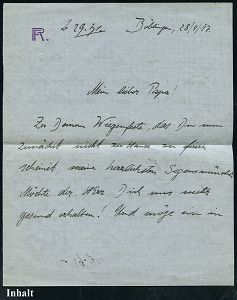 FR
Böblingen, 28/9/17.
Mein lieber Papa!
Zu Deinem Wiegenfeste, das Du nun
zunächst nicht zu Hause zu feiern
scheinst meine herzlichsten Segenswünsche
Möchte der Herr Dich uns weiter
gesund erhalten! Und möge ein in
Inhalt